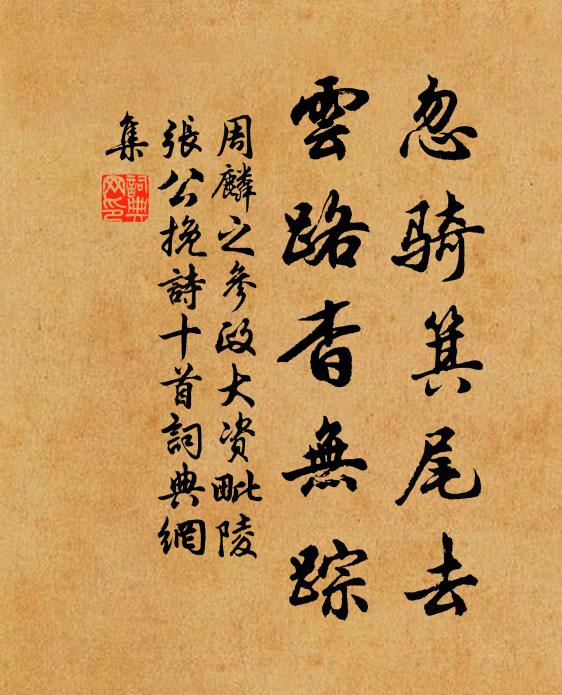 忽骑箕尾去
雲路杳無踪
周麟之参政大资毗陵
張公挽詩十首詞典網
集
詞典网印